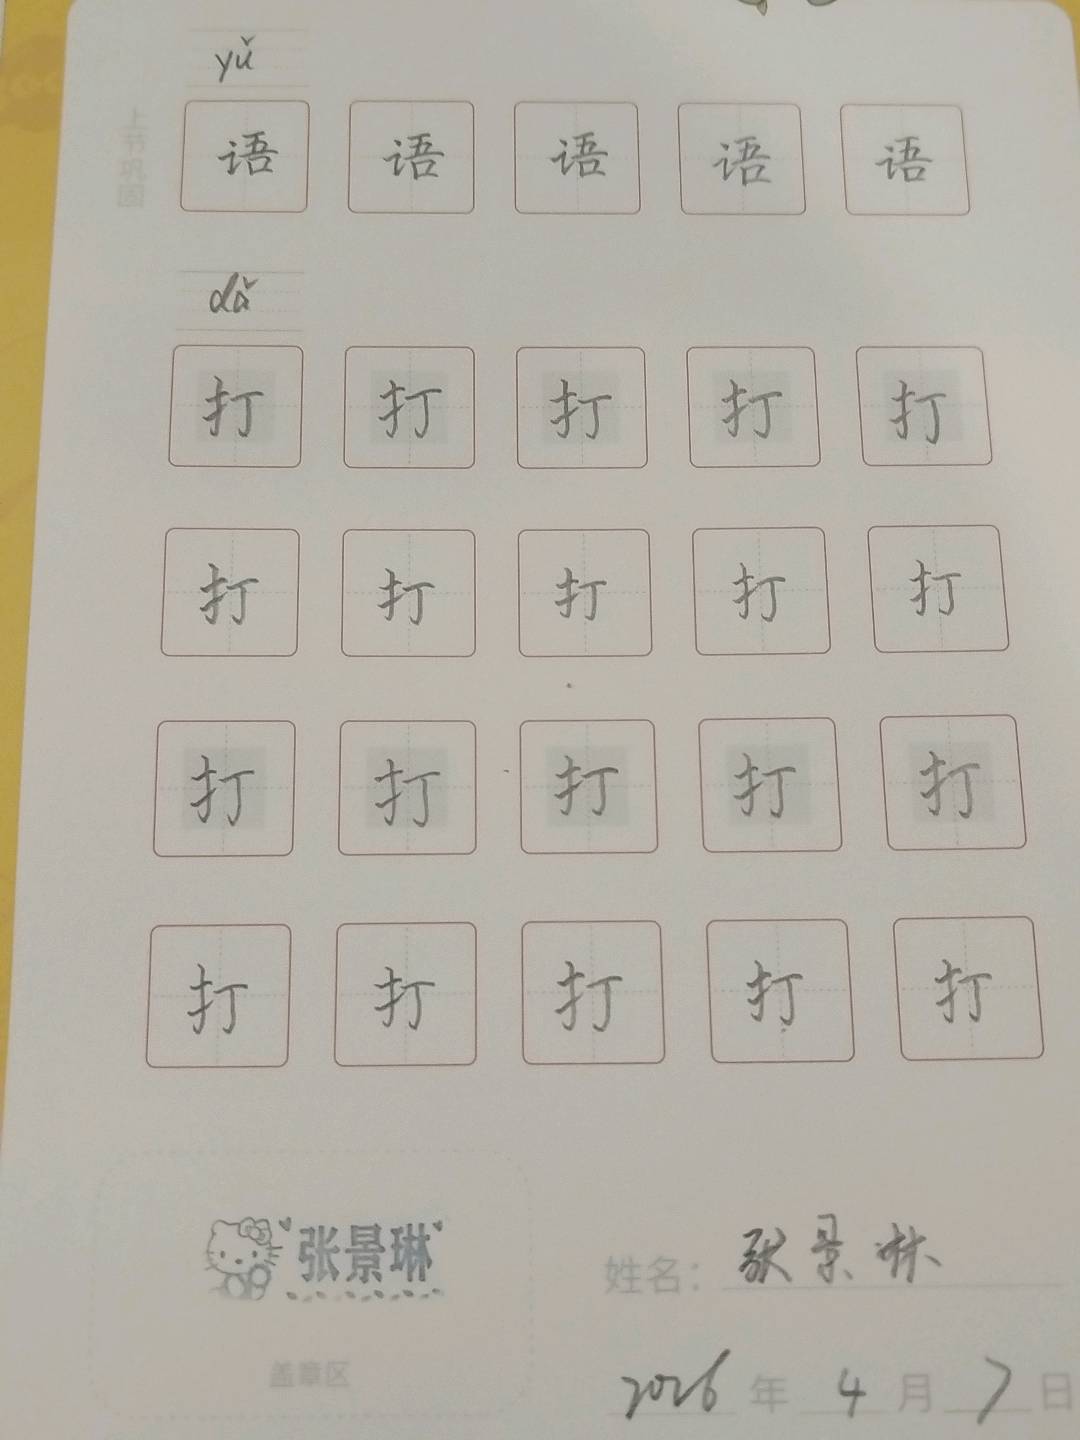 yǔ
上节巩固
语 语 语 语 语
dǎ
打 打 打 打 打
打 打 打 打 打
打 打 打 打 打
打 打 打 打 打
张景琳
盖章区
姓名：张景琳
2026年4月7日